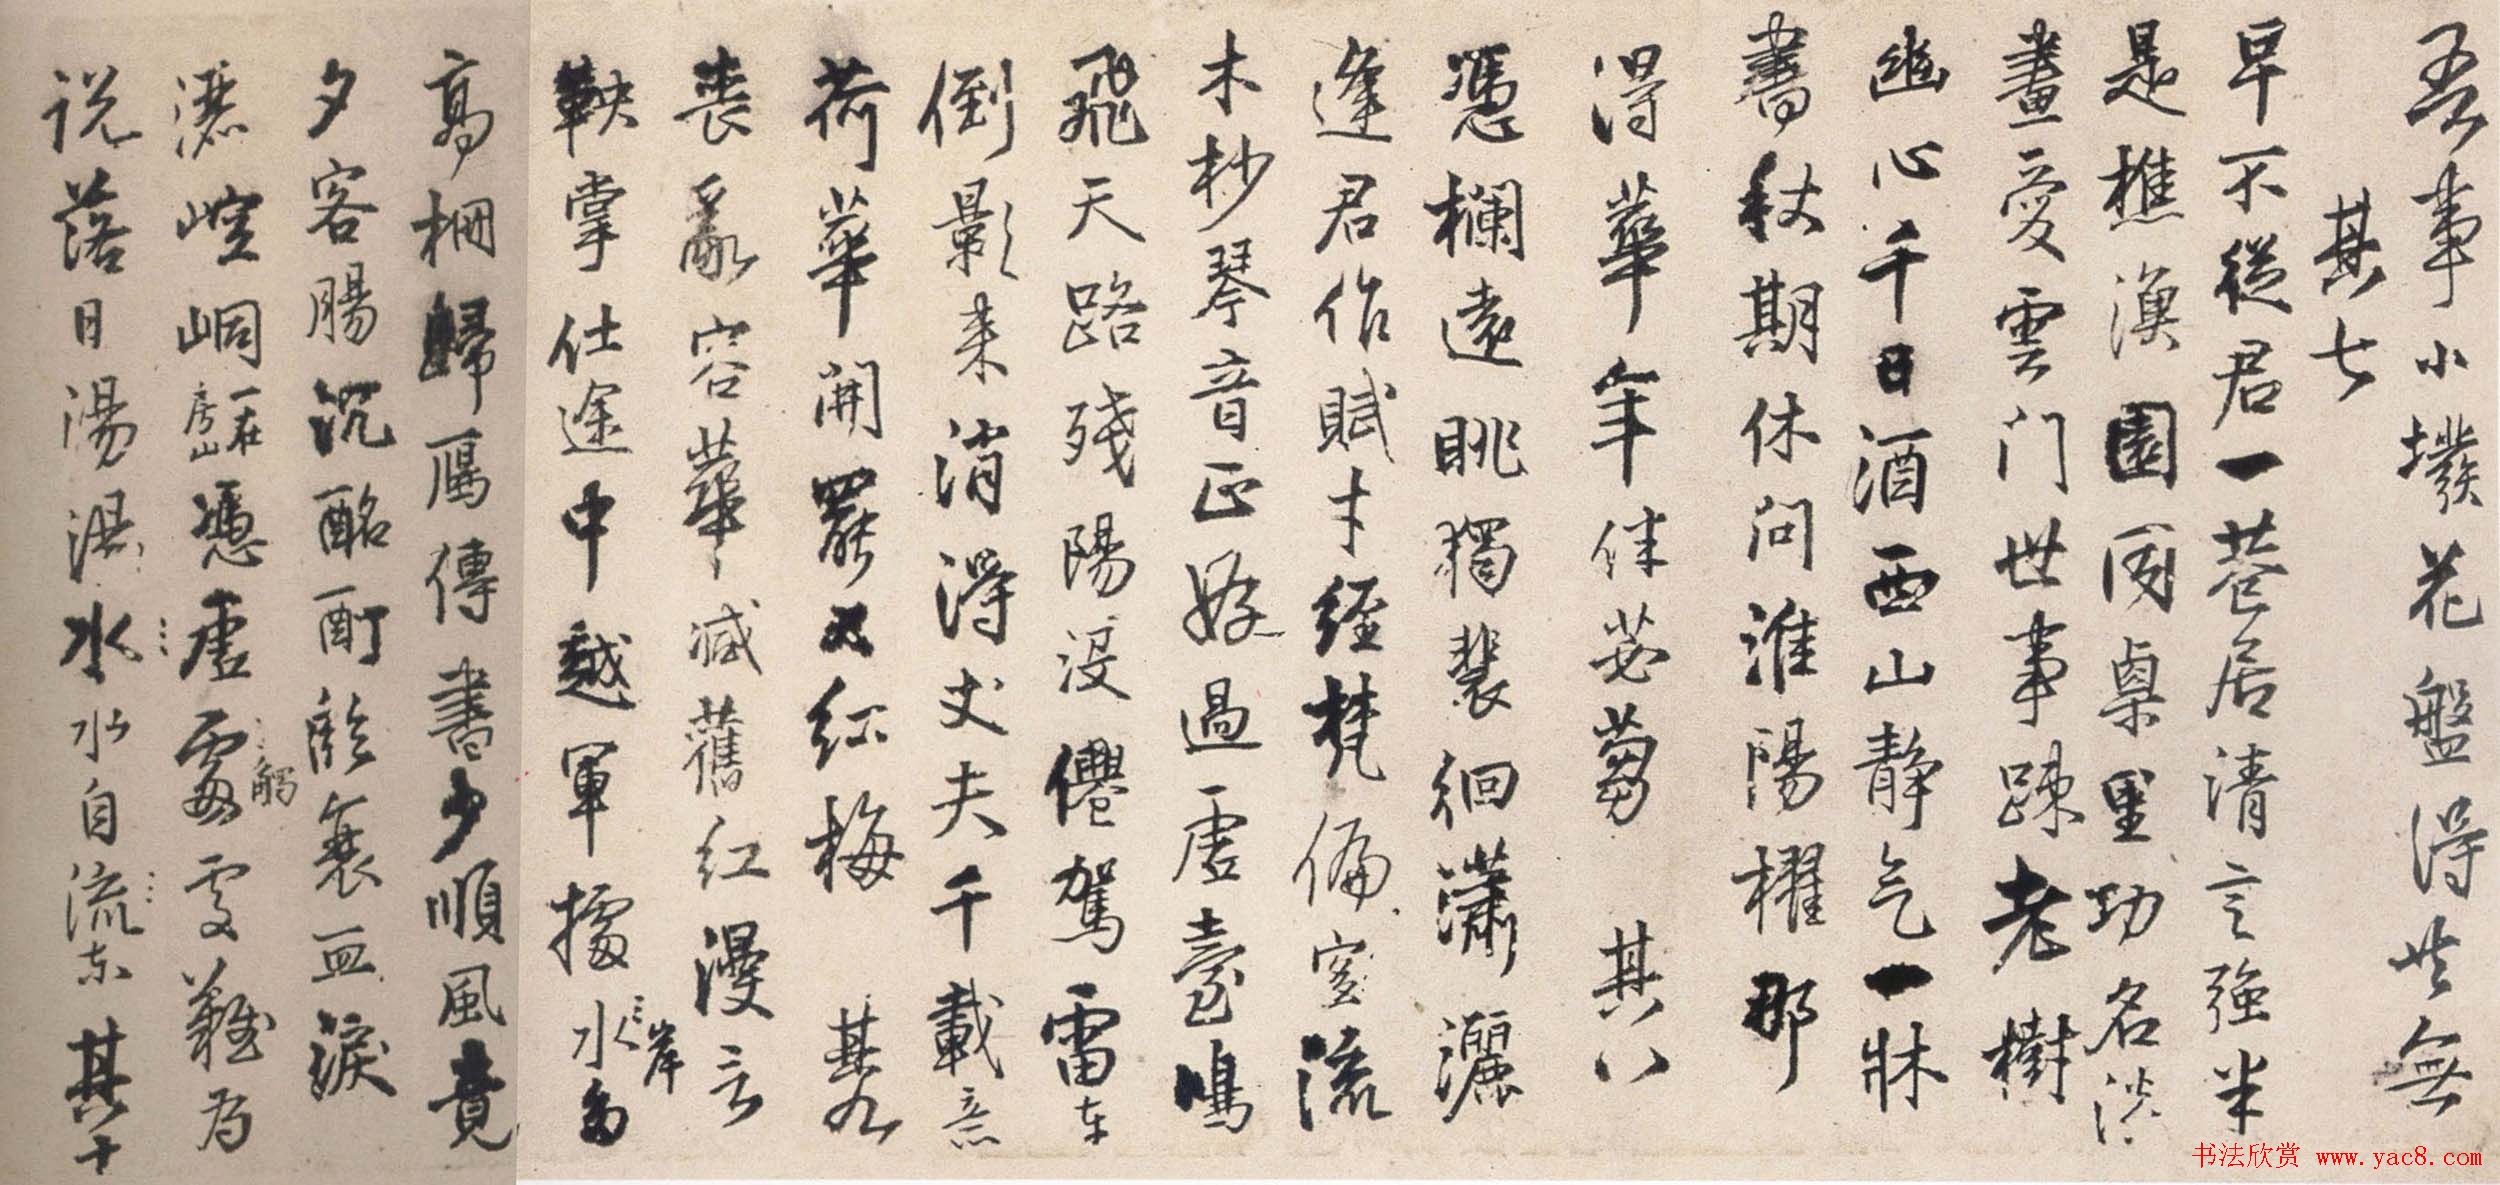 吾事小墢花盤得共無
其七
早不從君一巷居清言強半
是樵漁園圃稟里功名淡
畫愛雲門世事踈老樹
幽心千日酒西山靜气一牀
書秋期休問淮陽櫂那
得華年伴苾蒭 其八
憑欄遠眺獨裴徊瀟灑
逢君作賦才經梵偏宜流
木杪琴音正好過虛臺鳴
飛天路殘陽沒僊駕雷車
倒影来消得丈夫千載意
荷華開罷又紅梅 其九
喪亂容華減舊紅漫言
鞅掌仕途中越軍據水水多岸
高柵歸鴈傳書少順風竟
夕客腸沉酩酊衰血淚
灑崆峒一在房山憑虛觸處難为
说落日湯湯水水自流东 其十
书法欣赏 www.yac8.com